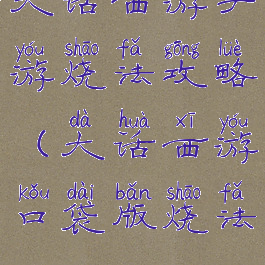 大话西游手
yóu shāo fǎ gōng lüè
游烧法攻略
dà huà xī yóu
（大话西游
kǒu dài bǎn shāo fǎ
口袋版烧法